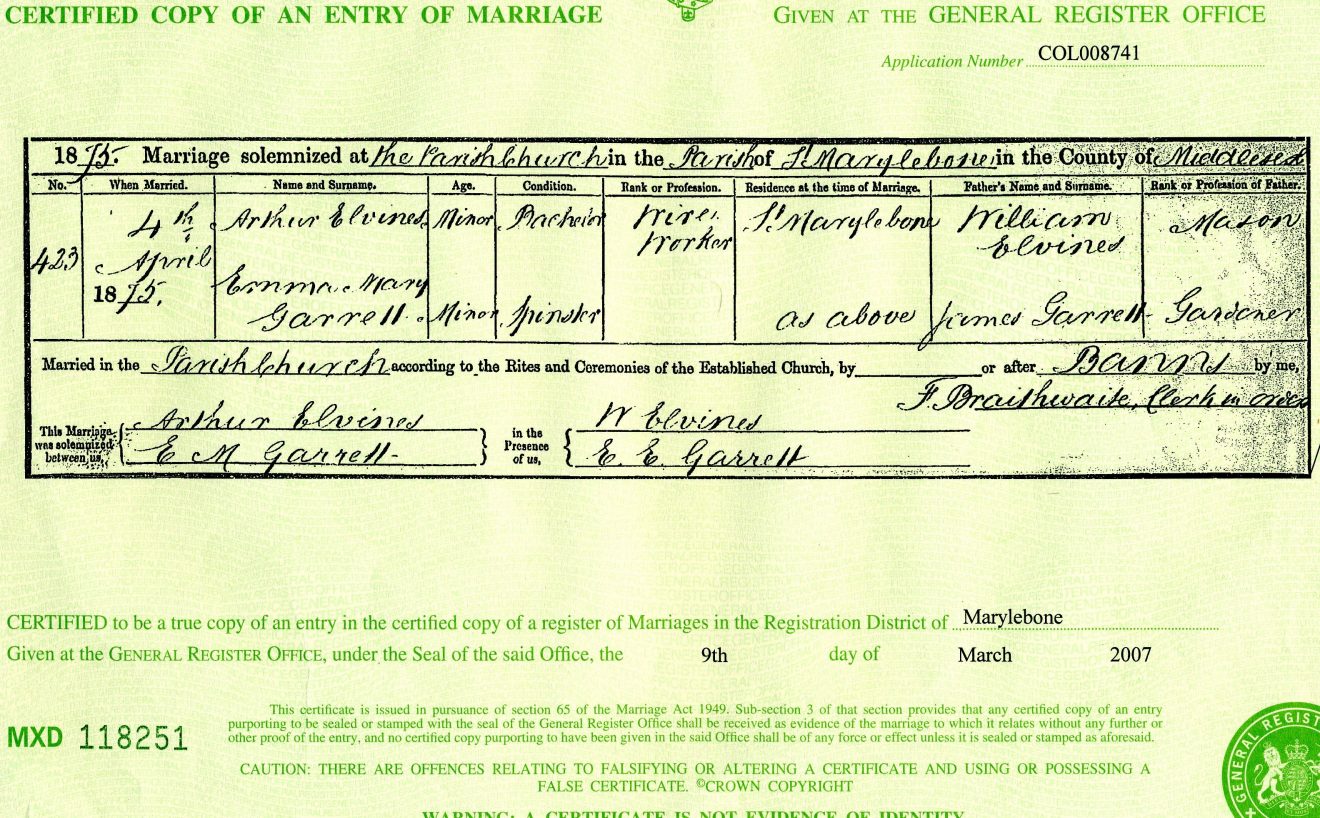 CERTIFIED COPY OF AN ENTRY OF MARRIAGE
GIVEN AT THE GENERAL REGISTER OFFICE
Application Number COL008741
1875. Marriage solemnized at the Parish Church in the Parish of St Marylebone in the County of Middlesex
No. When Married. Name and Surname. Age. Condition. Rank or Profession. Residence at the time of Marriage. Father's Name and Surname. Rank or Profession of Father.
423 4th April 1875. Arthur Elvines Minor Bachelor Wire Worker St Marylebone William Elvines Mason
Emma Mary Garrett Minor Spinster as above James Garrett Gardener
Married in the Parish Church according to the Rites and Ceremonies of the Established Church, by or after Banns by me,
F. Braithwaite, Clerk in orders
This Marriage was solemnized between us, Arthur Elvines in the Presence of us, W Elvines
E M Garrett E. E. Garrett
CERTIFIED to be a true copy of an entry in the certified copy of a register of Marriages in the Registration District of Marylebone
Given at the GENERAL REGISTER OFFICE, under the Seal of the said Office, the 9th day of March 2007
This certificate is issued in pursuance of section 65 of the Marriage Act 1949. Sub-section 3 of that section provides that any certified copy of an entry
purporting to be sealed or stamped with the seal of the General Register Office shall be received as evidence of the marriage to which it relates without any further or
other proof of the entry, and no certified copy purporting to have been given in the said Office shall be of any force or effect unless it is sealed or stamped as aforesaid.
MXD 118251
CAUTION: THERE ARE OFFENCES RELATING TO FALSIFYING OR ALTERING A CERTIFICATE AND USING OR POSSESSING A
FALSE CERTIFICATE. ©CROWN COPYRIGHT
WARNING: A CERTIFICATE IS NOT EVIDENCE OF IDENTITY
GENERAL